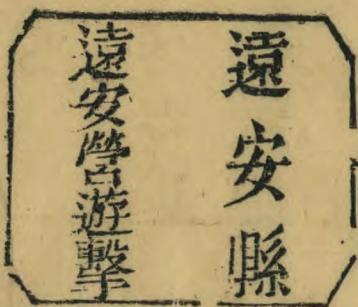 遠安縣
遠安營遊擊